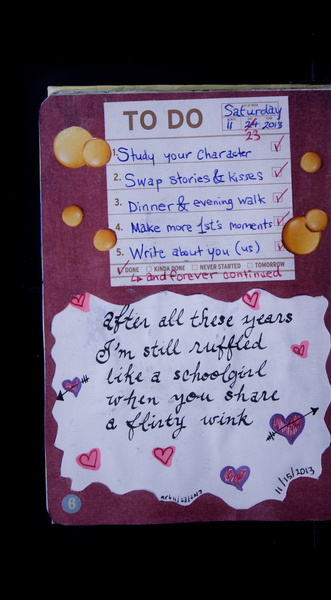 TO DO
Saturday
11 24 2013
23
1. Study your character
2. Swap stories & kisses
3. Dinner & evening walk
4. Make more 1st's moments
5. Write about you (us)
DONE KINDA DONE NEVER STARTED TOMORROW
↳ and forever continued
after all these years
I'm still ruffled
like a schoolgirl
when you share
a flirty wink
11/15/2013
6